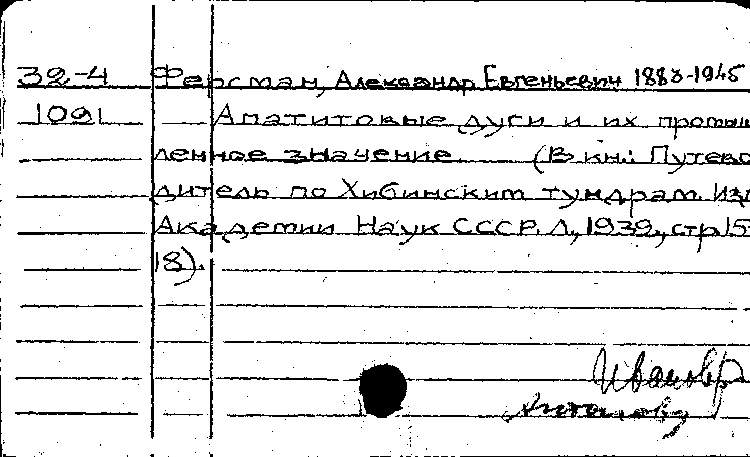 32-4 Ферсман, Александр Евгеньевич 1883-1945
1091 Апатитовые дуги и их промыш
ленное значение (В кн.: Путево
дитель по Хибинским тундрам. Изд
Академии Наук СССР. Л, 1932, стр 15-
18).